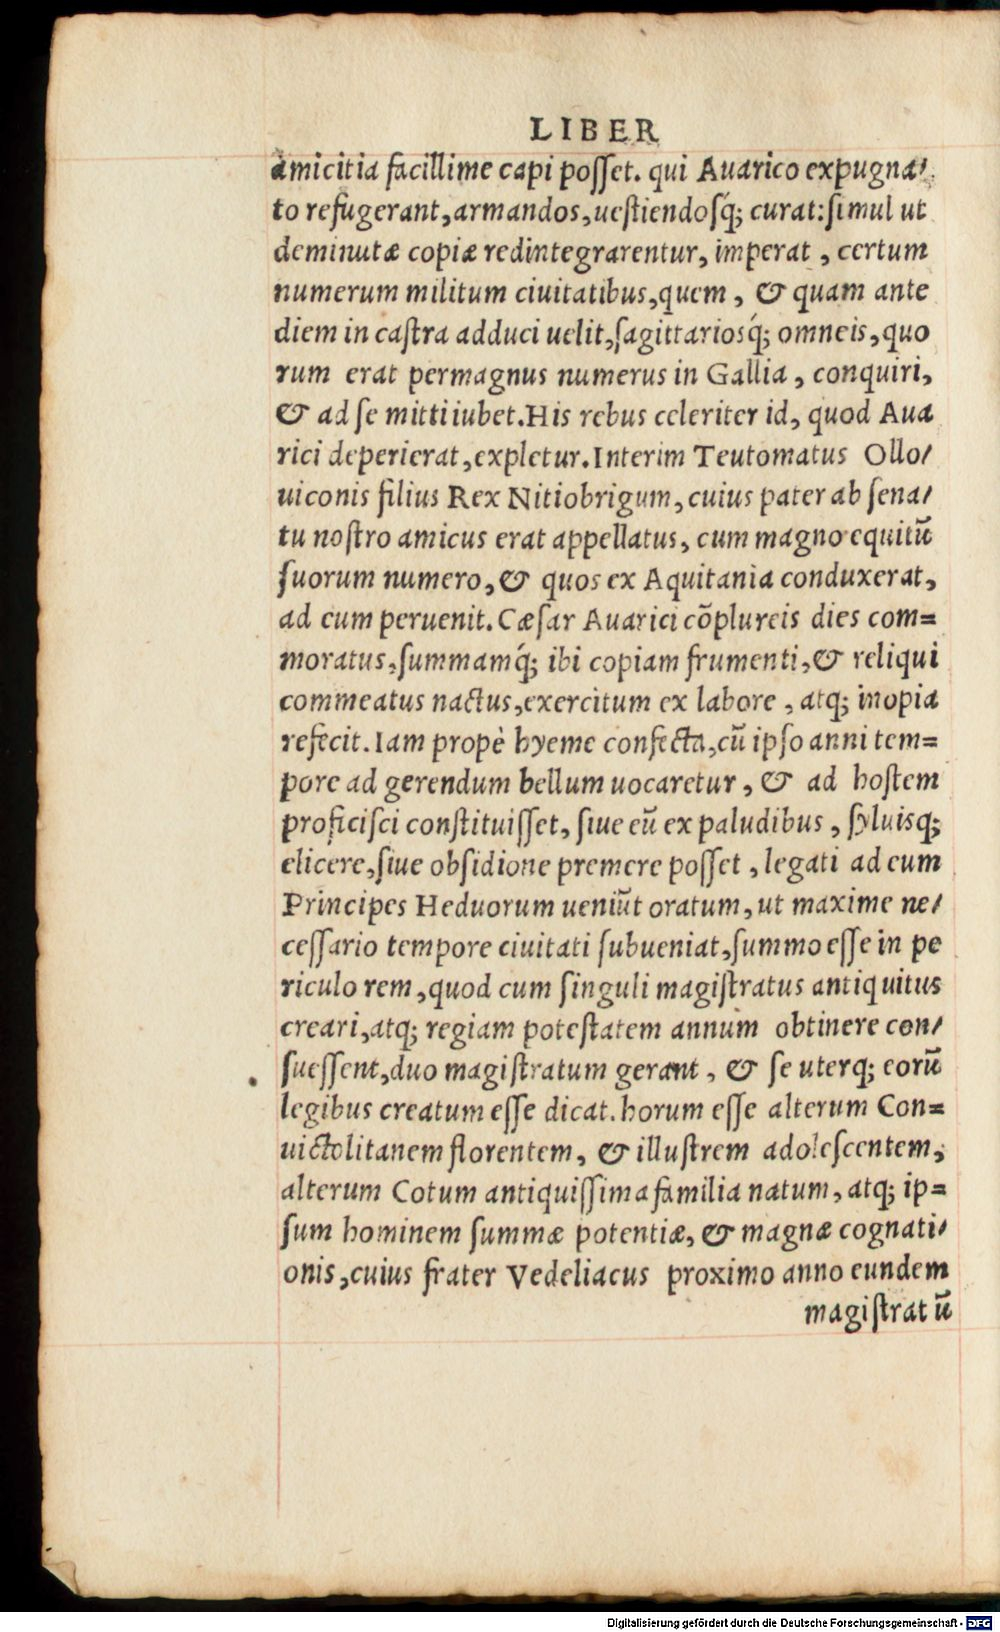 LIBER
amicitia facillime capi posſet. qui Auarico expugna/
to refugerant, armandos, ueſtiendosq́; curat: ſimul ut
deminutæ copiæ redintegrarentur, imperat, certum
numerum militum ciuitatibus, quem, & quam ante
diem in caſtra adduci uelit, ſagittariosq́; omneis, quo
rum erat permagnus numerus in Gallia, conquiri,
& ad ſe mitti iubet. His rebus celeriter id, quod Aua
rici deperierat, expletur. Interim Teutomatus Ollo/
uiconis filius Rex Nitiobrigum, cuius pater ab ſena/
tu noſtro amicus erat appellatus, cum magno equitũ
ſuorum numero, & quos ex Aquitania conduxerat,
ad eum peruenit. Cæſar Auarici cõplureis dies com=
moratus, ſummamq́; ibi copiam frumenti, & reliqui
commeatus nactus, exercitum ex labore, atq; inopia
refecit. Iam propè hyeme confecta, cũ ipſo anni tem=
pore ad gerendum bellum uocaretur, & ad hoſtem
proficiſci conſtituiſſet, ſiue eũ ex paludibus, ſyluisq;
elicere, ſiue obſidione premere poſſet, legati ad eum
Principes Heduorum ueniũt oratum, ut maxime ne/
ceſſario tempore ciuitati ſubueniat, ſummo eſſe in pe
riculo rem, quod cum ſinguli magiſtratus antiquitus
creari, atq; regiam poteſtatem annum obtinere con/
ſueſſent, duo magiſtratum gerant, & ſe uterq; eorũ
legibus creatum eſſe dicat. horum eſſe alterum Con=
uictolitanem florentem, & illuſtrem adoleſcentem,
alterum Cotum antiquiſſima familia natum, atq; ip=
ſum hominem ſummæ potentiæ, & magnæ cognati/
onis, cuius frater Vedeliacus proximo anno eundem
magiſtratũ
Digitalisierung gefördert durch die Deutsche Forschungsgemeinschaft - DFG